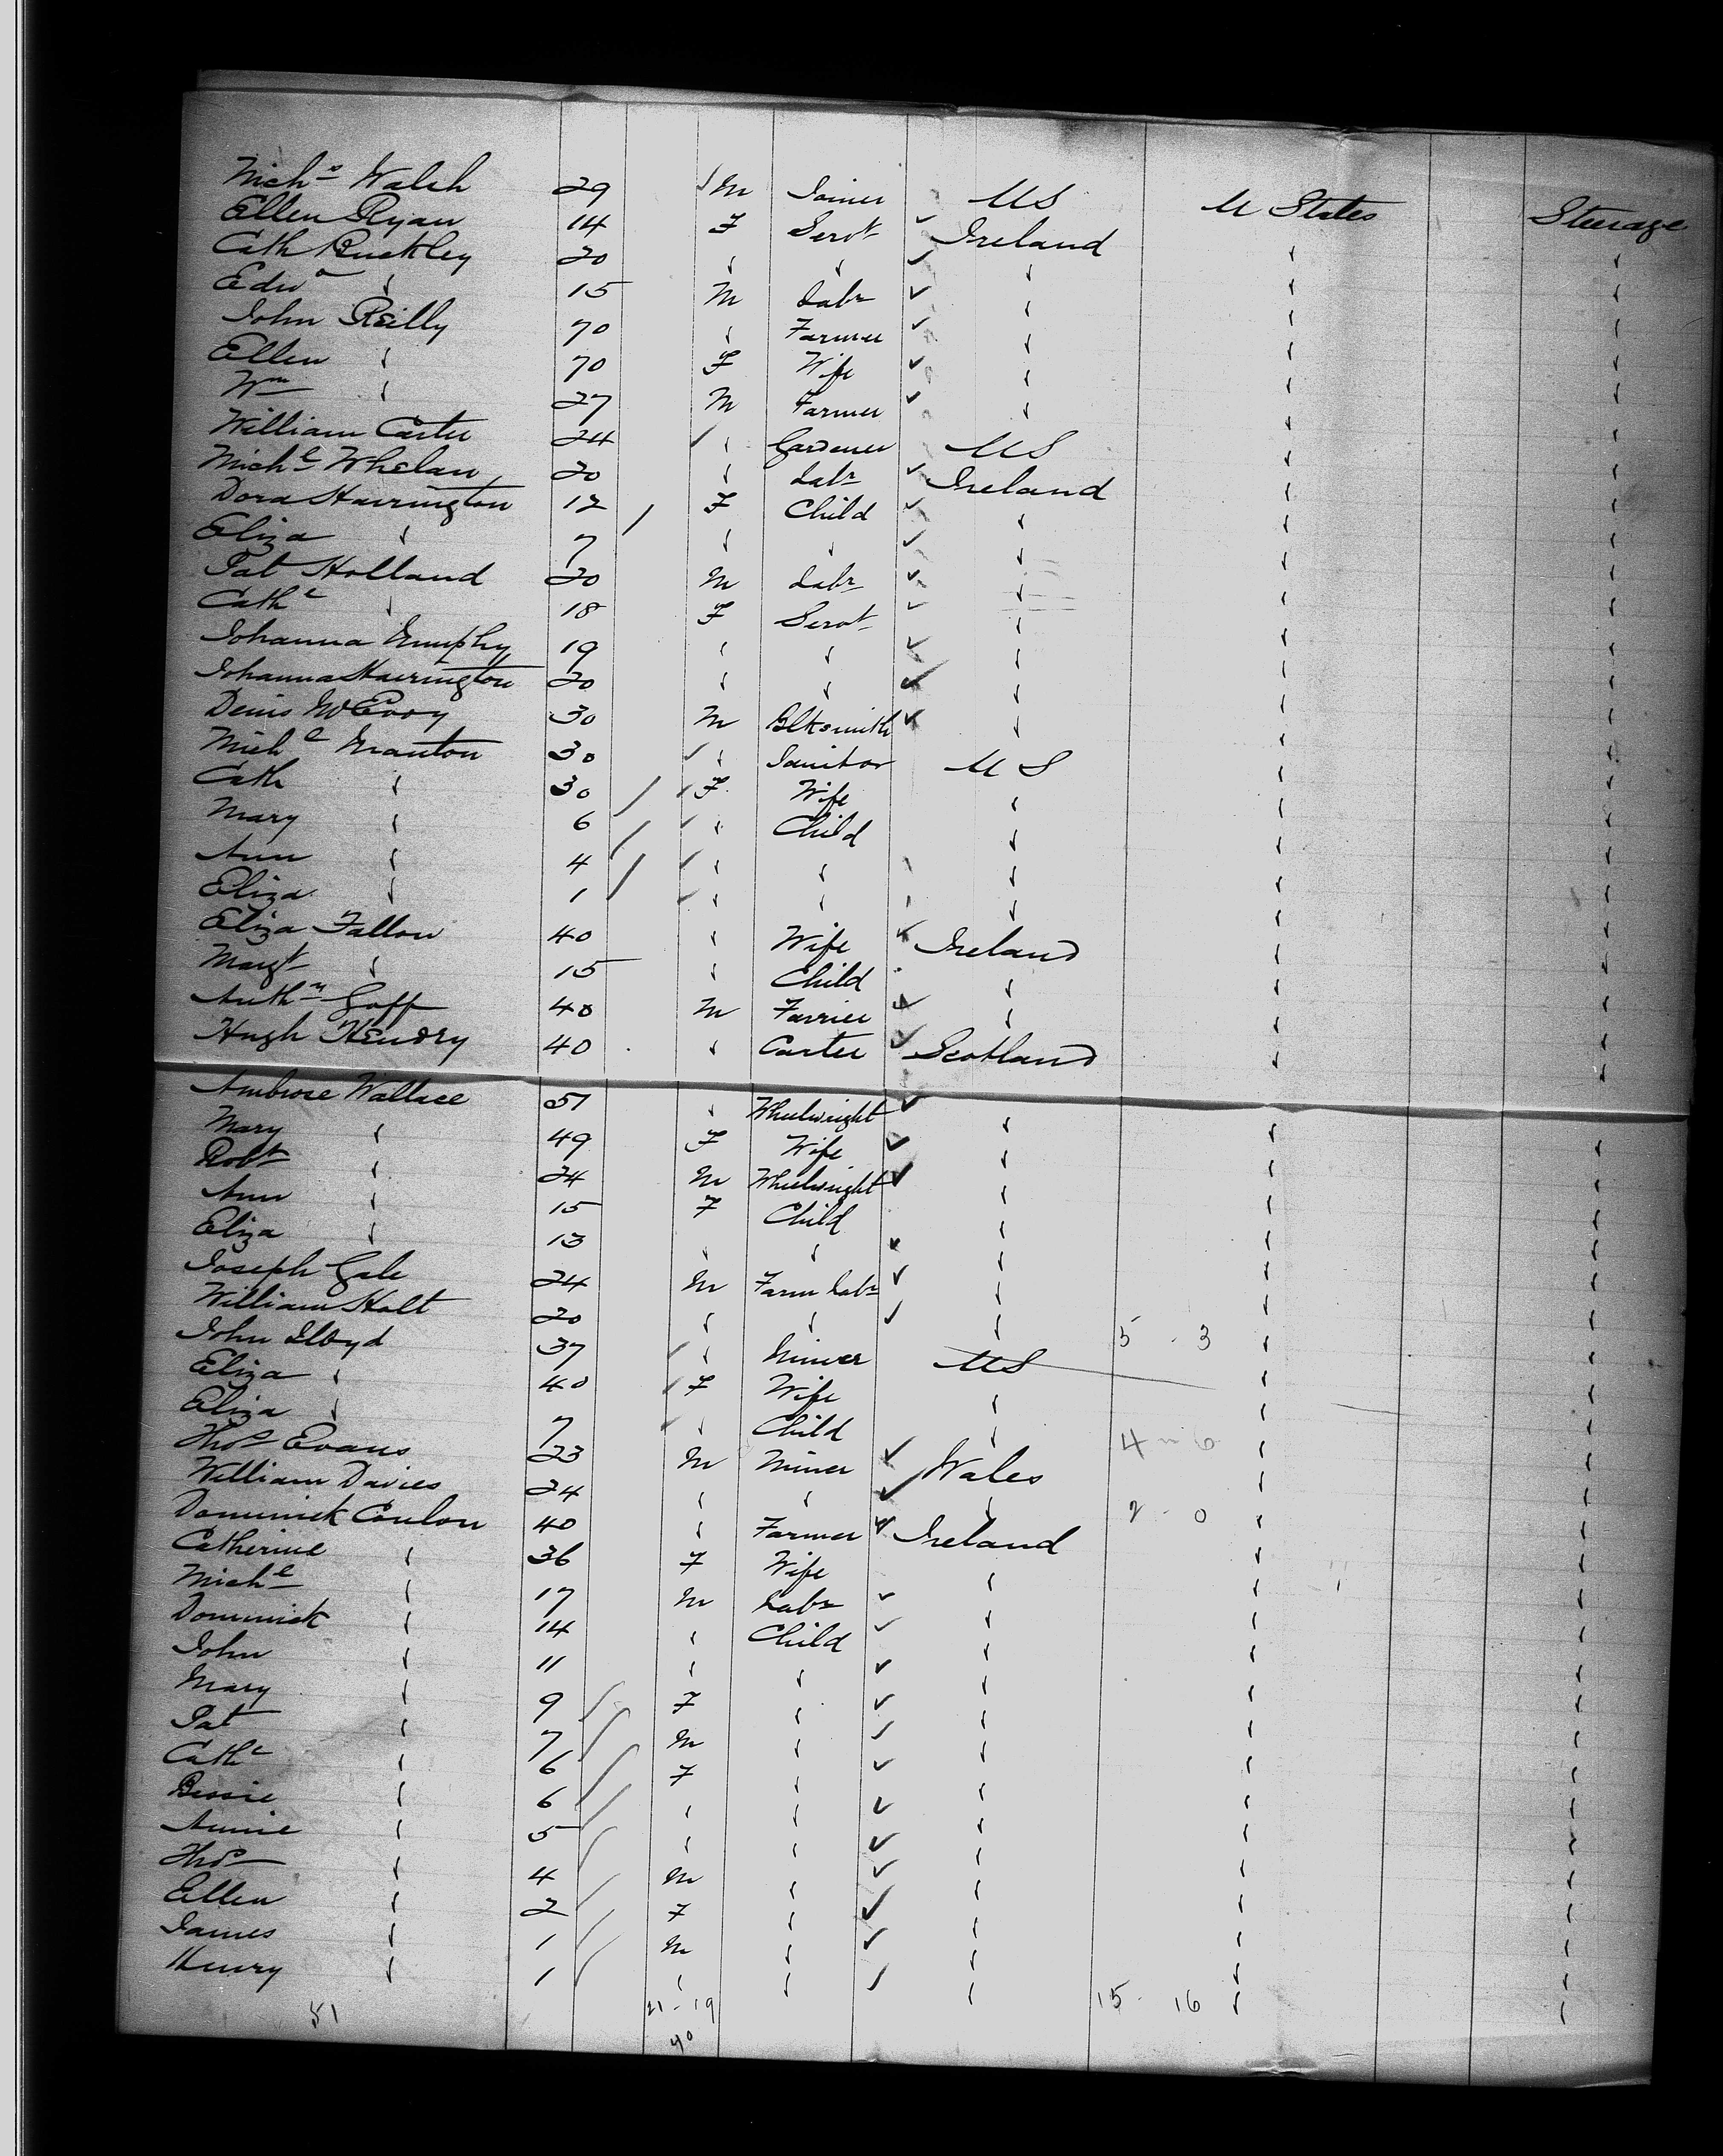 Michs Walsh 29 M Joiner US U States Steerage
Ellen Ryan 14 F Servt Ireland
Cath Buckley 20 " " "
Edwd " 15 M Labr "
John Reilly 70 " Farmer "
Ellen " 70 F Wife "
Wm " 27 M Farmer "
William Carter 24 " Gardener US
Michl Whelan 20 " Labr Ireland
Dora Harrington 12 F Child "
Eliza " 7 " " "
Pat Holland 20 M Labr "
Cathe " 18 F Servt "
Johanna Murphy 19 " " "
Johanna Harrington 20 " " "
Denis McEvoy 30 M Blksmith "
Michl Manton 30 " Janitor US
Cath " 30 F Wife "
Mary " 6 " Child "
Ann " 4 " " "
Eliza " 1 " " "
Eliza Fallon 40 " Wife Ireland
Margt " 15 " Child "
Anthy Goff 40 M Farrier "
Hugh Hendry 40 " Carter Scotland
Ambrose Wallace 51 " Wheelwright "
Mary " 49 F Wife "
Robt " 24 M Wheelwright "
Ann " 15 F Child "
Eliza " 13 " " "
Joseph Gale 24 M Farm Labr "
William Holt 20 " " " 5 - 3
John Lloyd 37 " Miner US
Eliza " 40 F Wife "
Eliza " 7 " Child " 4 - 6
Thos Evans 23 M Miner Wales
William Davies 24 " " " 2 - 0
Dominick Conlon 40 " Farmer Ireland
Catherine " 36 F Wife "
Michl " 17 M Labr "
Dominick " 14 " Child "
John " 11 " " "
Mary " 9 F " "
Pat " 7 M " "
Cathe " 6 F " "
Bessie " 6 " " "
Annie " 5 " " "
Thos " 4 M " "
Ellen " 2 F " "
James " 1 M " "
Henry " 1 " " "
51 21 - 19 15 - 16
40